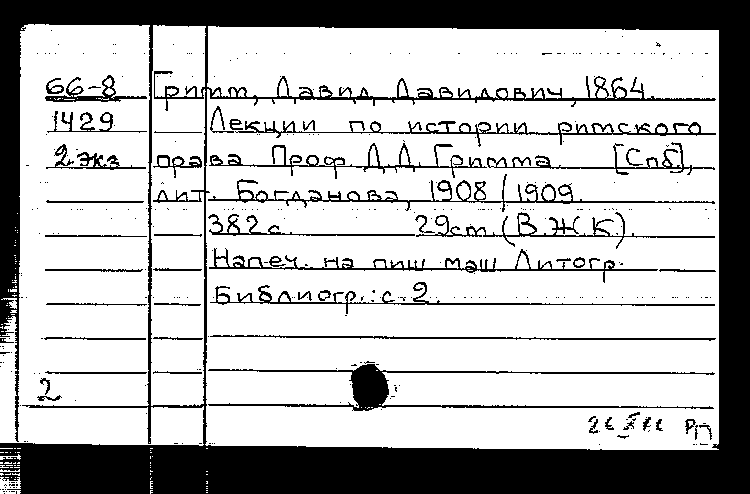 66-8 Гримм, Давид Давидович, 1864.
1429 Лекции по истории римского
2 экз права Проф. Д.Д. Гримма. [Спб],
лит. Богданова, 1908/1909.
382 с. 29 ст. (В.Ж.К).
Напеч. на пиш маш Литогр.
Библиогр.: с. 2.
2
РП